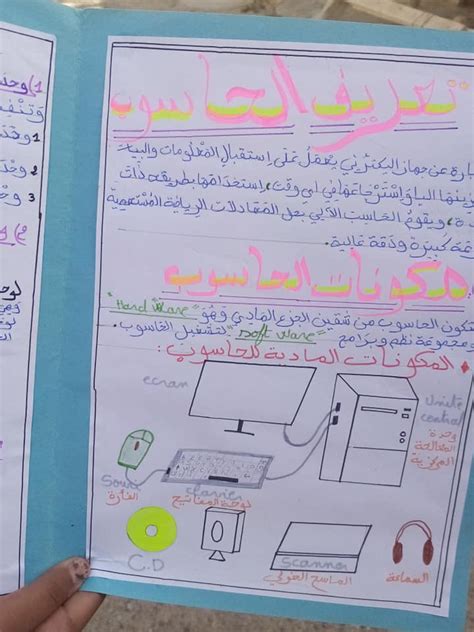 1) وحد
وتنف
1 وحد
2 وحد
3 وحد
تعريف الحاسوب
بارة عن جهاز إليكتروني يعمل على إستقبال المعلومات والبيا
إسترجاعها في اي وقت إستخدامها بطريقة ذات
ويقوم الحاسب الآلي بحل المعادلات الرياضية المستعصية
كبيرة ودقة عالية.
مكونات الحاسوب
كون الحاسوب من شقين الجزء المادي وهو "Hard Ware"
ومجموعة نظم وبرامج "Soft Ware" لتشغيل الحاسوب.
المكونات المادية للحاسوب:
ecran
Unité
central
وحدة
المعالجة
المركزية
Souris
الفأرة
Clavier
لوحة المفاتيح
C.D
Scanner
الماسح الضوئي
السماعة